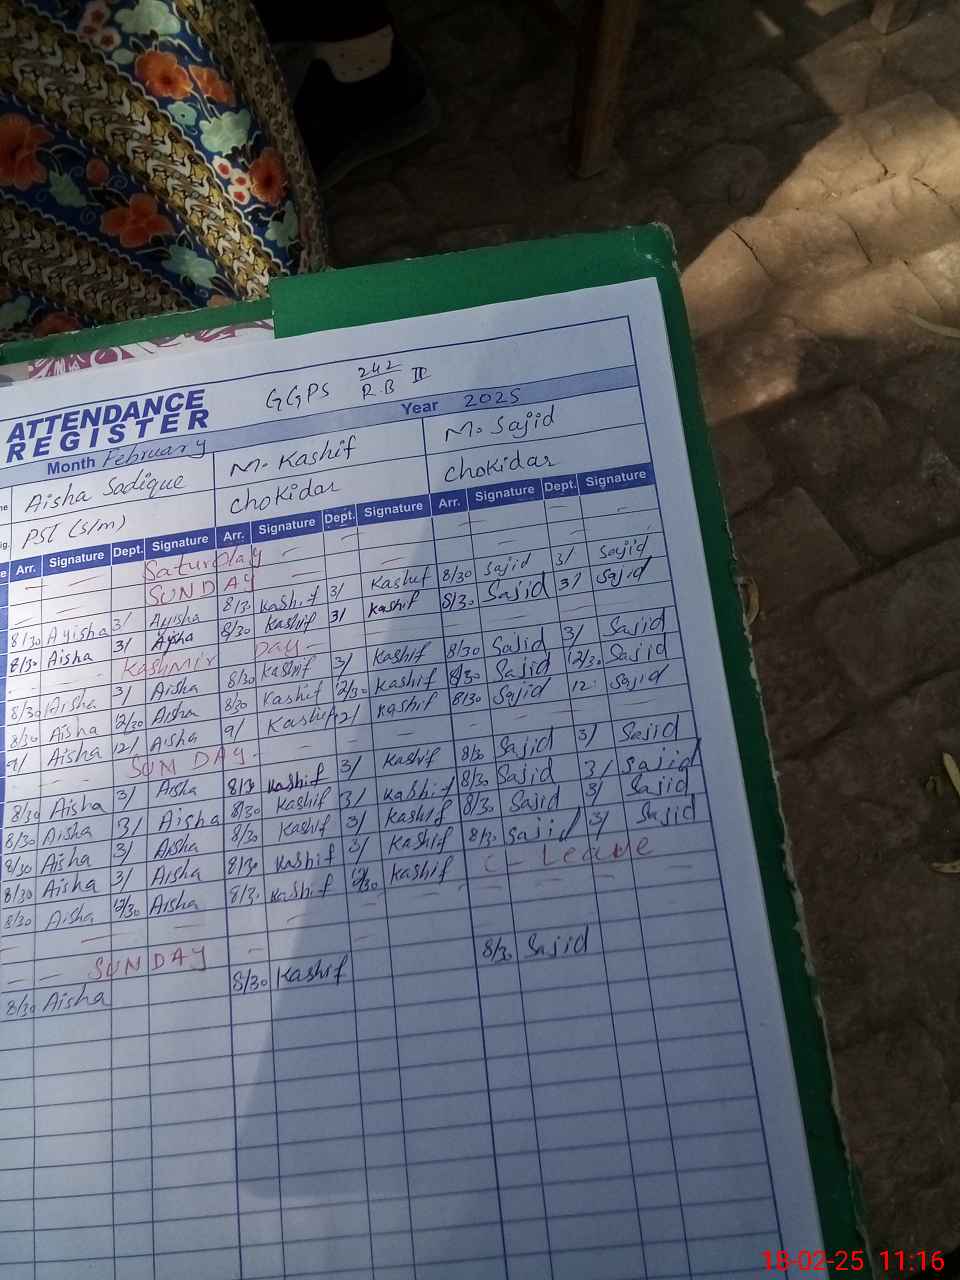 GGPS 242 R.B II
ATTENDANCE REGISTER
Month February Year 2025
Aisha Sadique M. Kashif M. Sajid
PST (S/M) Chokidar Chokidar
Arr. Signature Dept. Signature Arr. Signature Dept. Signature Arr. Signature Dept. Signature
— — Saturday — — — —
— SUNDAY — — — —
8/30 Ayisha 3/ Ayisha 8/30 Kashif 3/ Kashif 8/30 Sajid 3/ Sajid
8/30 Aisha 3/ Aysha 8/30 Kashif 3/ Kashif 8/30 Sajid 3/ Sajid
- - Kashmir Day - - - - -
8/30 Aisha 3/ Aisha 8/30 Kashif 3/ Kashif 8/30 Sajid 3/ Sajid
8/30 Aisha 12/30 Aisha 8/30 Kashif 12/30 Kashif 8/30 Sajid 12/30 Sajid
9/ Aisha 12/ Aisha 9/ Kashif 12/ Kashif 8/30 Sajid 12: Sajid
- - SUNDAY - - - - - -
8/30 Aisha 3/ Aisha 8/30 Kashif 3/ Kashif 8/30 Sajid 3/ Sajid
8/30 Aisha 3/ Aisha 8/30 Kashif 3/ Kashif 8/30 Sajid 3/ Sajid
8/30 Aisha 3/ Aisha 8/30 Kashif 3/ Kashif 8/30 Sajid 3/ Sajid
8/30 Aisha 3/ Aisha 8/30 Kashif 3/ Kashif 8/30 Sajid 3/ Sajid
8/30 Aisha 12/30 Aisha 8/30 Kashif 12/30 Kashif C - Leave
— — — — — — — —
— — SUNDAY — — — —
8/30 Aisha 8/30 Kashif 8/30 Sajid
18-02-25 11:16